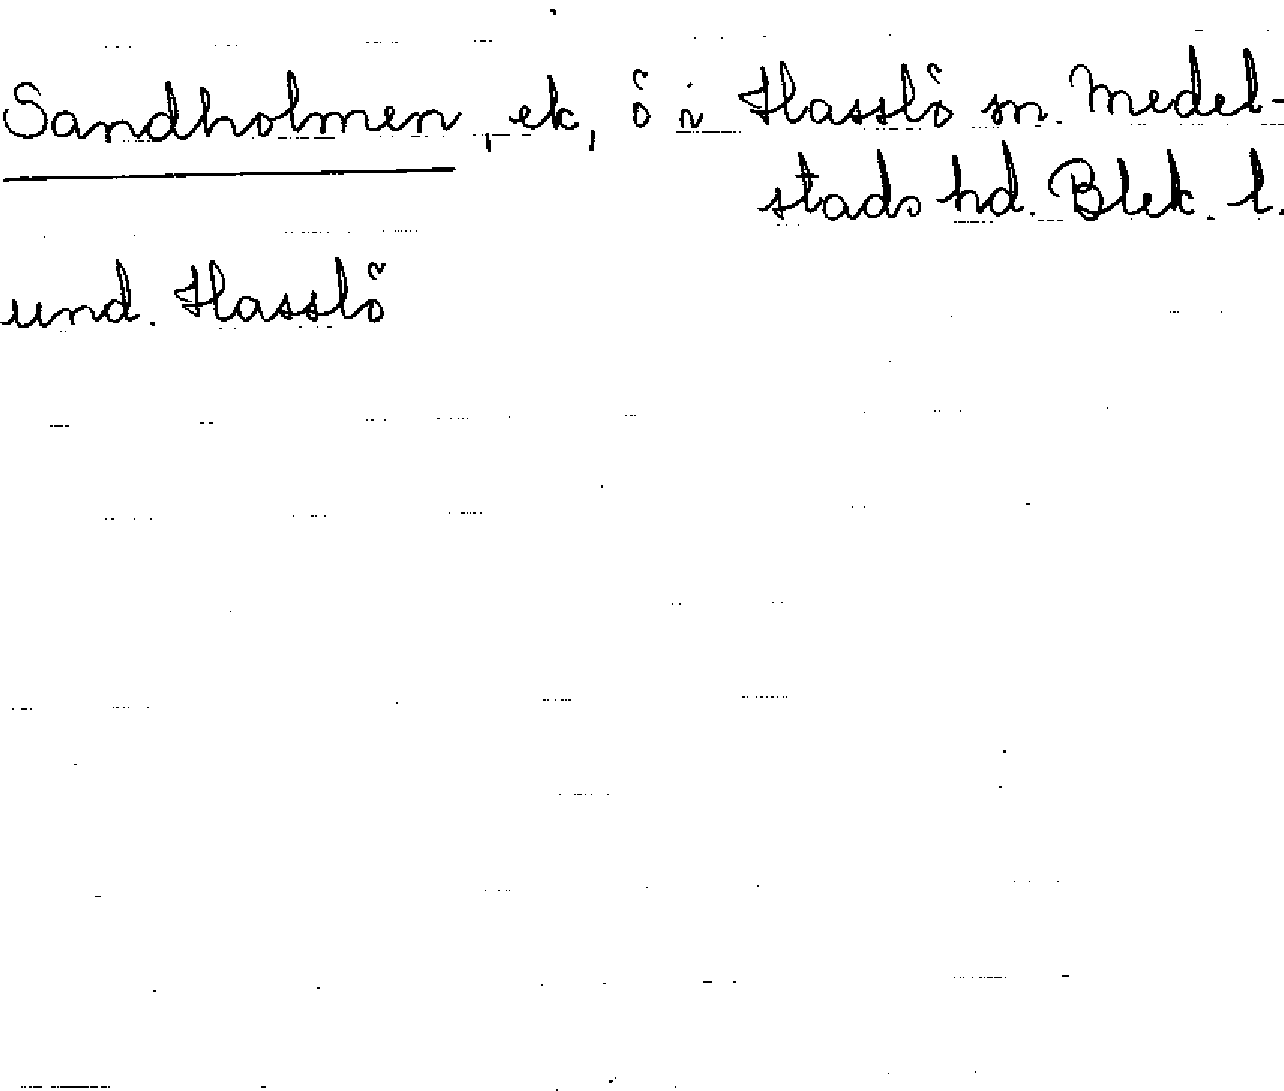 Sandholmen, ek, ö i Hasslö sn. Medel-
stads hd. Blek. l.
und. Hasslö